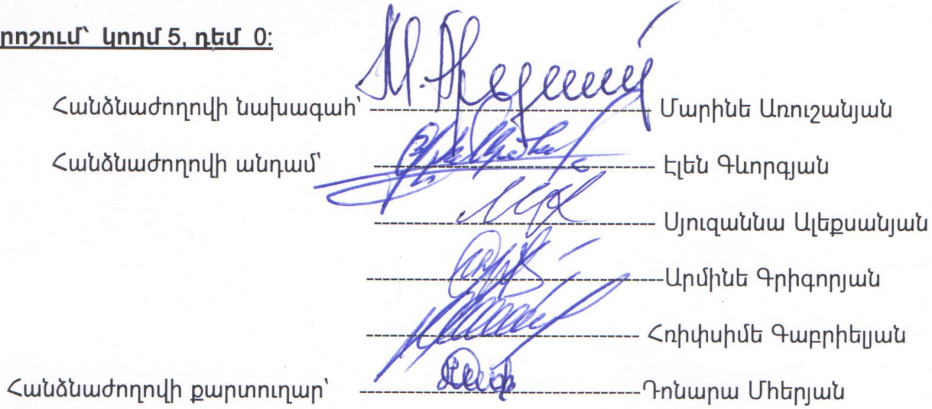 րոշում՝ կողմ 5, դեմ 0:
Հանձնաժողովի նախագահ՝ Մարինե Առուշանյան
Հանձնաժողովի անդամ՝ Էլեն Գևորգյան
Սյուզաննա Ալեքսանյան
Արմինե Գրիգորյան
Հռիփսիմե Գաբրիելյան
Հանձնաժողովի քարտուղար՝ Դոնարա Մհերյան